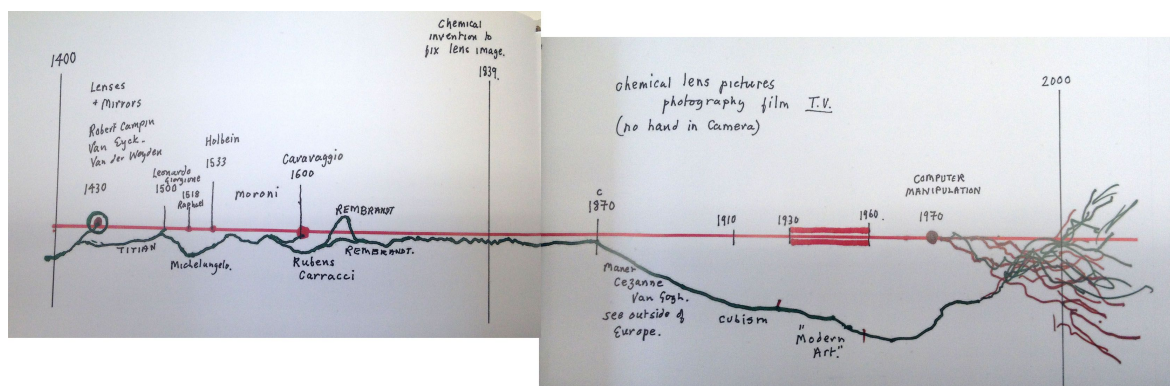 1400
Lenses
+ Mirrors
Robert Campin
Van Eyck.
Van der Weyden
1430
Leonardo
Giorgione
1500
1518
Raphael
Holbein
1533
Moroni
Caravaggio
1600
REMBRANDT
TITIAN
Michelangelo.
Rubens
Carracci
REMBRANDT.
Chemical
invention to
fix lens image.
1839.
chemical lens pictures
photography film T.V.
(no hand in Camera)
2000
C
1870
1910
1930
1960.
COMPUTER
MANIPULATION
1970
Manet
Cezanne
Van Gogh.
see outside of
Europe.
CUBISM
"Modern
Art."